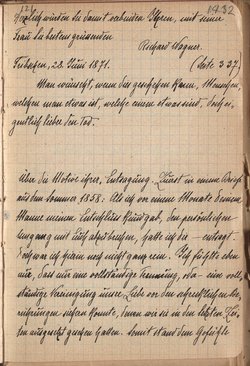 Herzlich würden Sie damit verbinden Ihren, und seine
Frau Sie bestens grüssenden
Richard Wagner.
28. Juni 1871. (Seite 337)
Man wünscht, wenn dies geschehen kann, Menschen,
welchen man etwas ist, welche einem etwas sind, doch ei-
gentlich lieber den Tod.
über die Motive ihrer Entsagung. Zuerst in einem Briefe
aus dem Sommer 1858: Als ich vor einem Monate Deinem
Manne meinen Entschluss kundgab, den persönlichen
Umgang mit Euch abzubrechen, hatte ich dir – entsagt.
Doch war ich hierin noch nicht ganz rein. Ich fühlte eben
nur, dass nur eine vollständige Trennung, oder – eine voll-
ständige Vereinigung unsere Liebe vor den schrecklichen Be-
rührungen sichern konnte, denen wir sie in den letzten Zei-
ten ausgesetzt gesehen hatten. Somit stand dem Gefühle